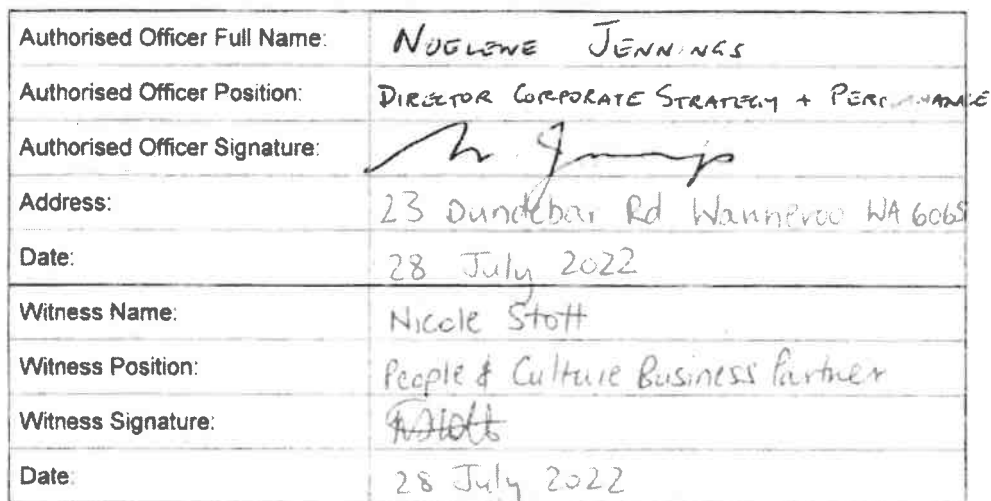 Authorised Officer Full Name: NOELENE JENNINGS
Authorised Officer Position: DIRECTOR CORPORATE STRATEGY + PERFORMANCE
Authorised Officer Signature:
Address: 23 Dundebar Rd Wanneroo WA 6065
Date: 28 July 2022
Witness Name: Nicole Stott
Witness Position: People & Culture Business Partner
Witness Signature:
Date: 28 July 2022